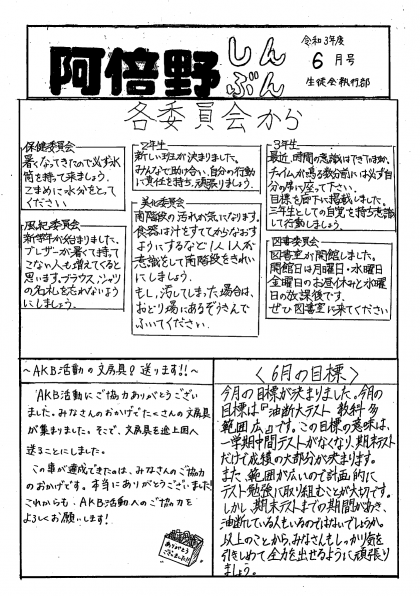 阿倍野しんぶん
令和3年度
6月号
生徒会執行部
各委員会から
保健委員会
暑くなってきたので必ず水
筒を持って来ましょう。
こまめに水分をとって
ください
風紀委員会
新学年が始まりました、
ブレザーが暑くて持って
こない人も増えてくると
思います。ブラウス、シャツ
の名札を忘れないよう
にしましょう。
2年生
新しい班が決まりました。
みんなで助け合い、自分の行動
に責任を持ち、頑張りましょう。
美化委員会
南階段の汚れが気になります。
食器は汁をすててかなおす
ようにするなど1人1人が
意識をして南階段をきれい
にしましょう。
もし、汚してしまった場合は、
おどり場にあるぞうきんで
ふいてください。
3年生
最近、時間の意識はできてますか。
チャイムが鳴る数分前には必ず自
分の席に座って下さい。
目標を廊下に掲載しました。
三年生としての自覚を持ち意識
して行動しましょう。
図書委員会
図書室が開館しました。
開館日は月曜日・水曜日
金曜日のお昼休みと水曜
日の放課後です。
ぜひ図書室に来てください
~AKB活動の文房具を送ります!!~
AKB活動にご協力ありがとうござい
ました。みなさんのおかげでたくさんの文房具
が集まりました。そこで、文房具を途上国へ
送ることにしました。
この事が達成できたのは、みなさんのご協力
のおかげです。本当にありがとうございました!
これからも、AKB活動へのご協力を
よろしくお願いします!
ありがとう
ございました!!
〈6月の目標〉
今月の目標が決まりました。今月の
目標は『油断大テスト 教科多
範囲広』です。この目標の意味は、
一学期中間テストがなくなり、期末テスト
だけで成績の大部分が決まります。
また、範囲が広いので計画的に
テスト勉強に取り組むことが大切です。
しかし、期末テストまでの期間があき、
油断している人もいるのではないでしょうか。
以上のことから、みなさんもしっかり気を
引きしめて全力を出せるように頑張り
ましょう。